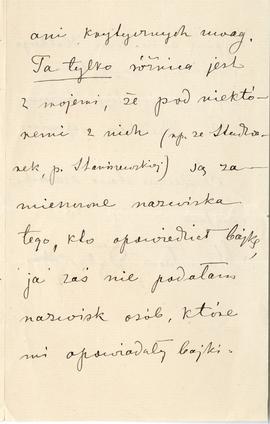 ani krytycznych uwag.
Ta tylko różnica jest
z mojemi, że pod niektó-
remi z nich (np. ze Studzia-
nek, p. Staniszewskiej) są za-
mieszczone nazwiska
tego, kto opowiedział bajkę,
ja zaś nie podałam
nazwisk osób, które
mi opowiadały bajki.